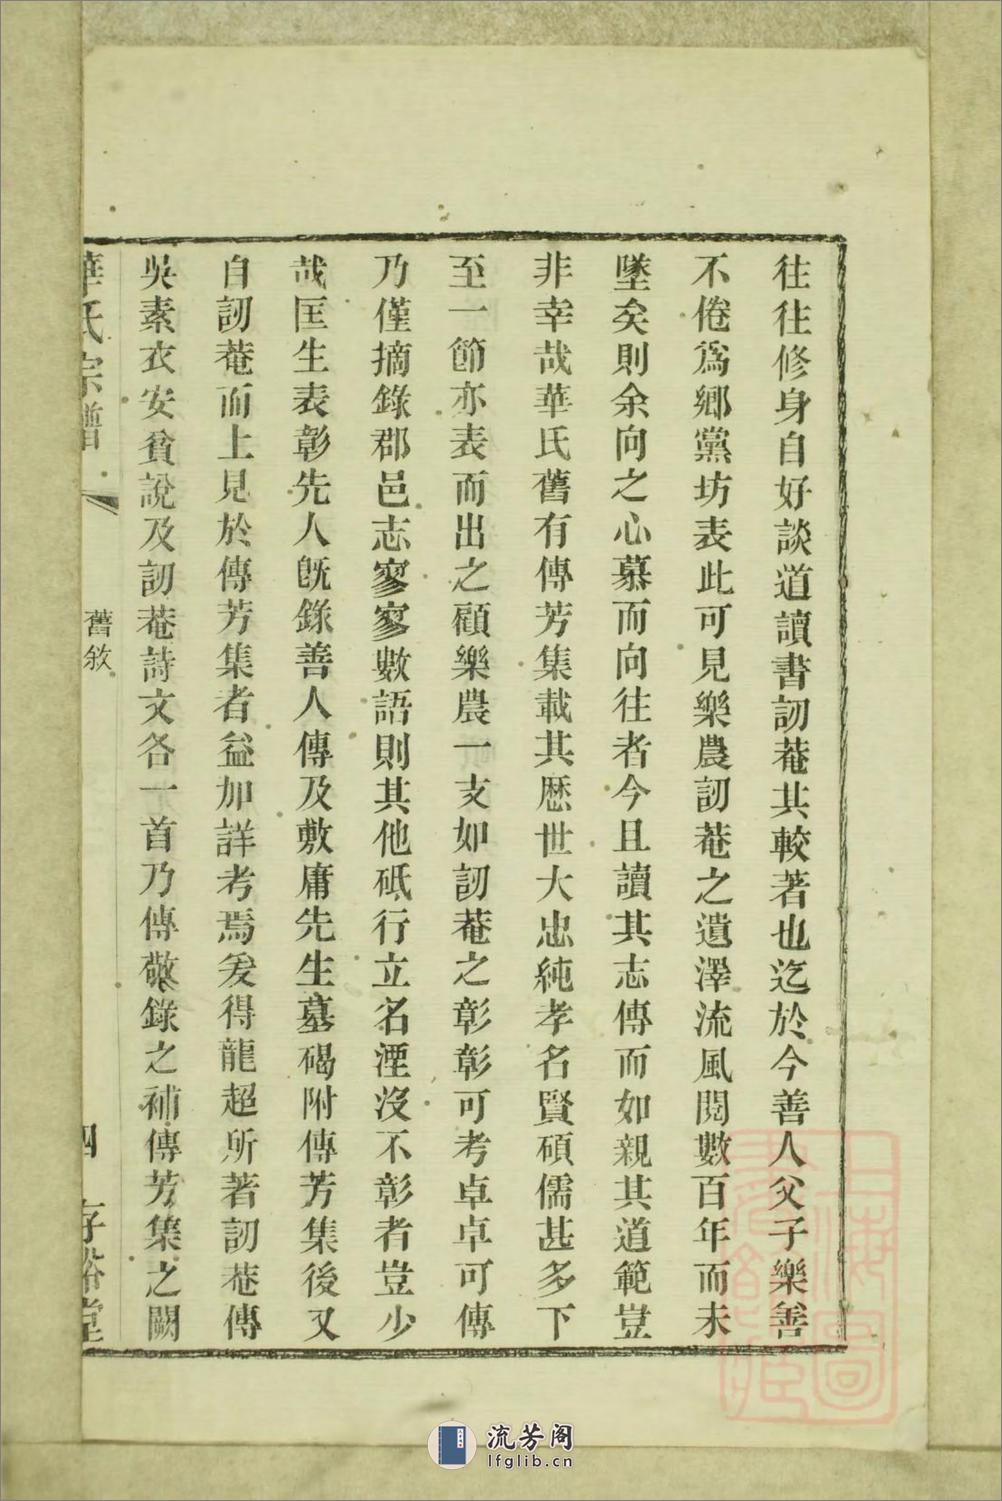 往往修身自好談道讀書訒菴其較著也迄於今善人父子樂善
不倦爲鄉黨坊表此可見樂農訒菴之遺澤流風閱數百年而未
墜矣則余向之心慕而向往者今且讀其志傳而如親其道範豈
非幸哉華氏舊有傳芳集載其歷世大忠純孝名賢碩儒甚多下
至一節亦表而出之顧樂農一支如訒菴之彰彰可考卓卓可傳
乃僅摘錄郡邑志寥寥數語則其他砥行立名湮沒不彰者豈少
哉匡生表彰先人旣錄善人傳及敷庸先生墓碣附傳芳集後又
自訒菴而上見於傳芳集者益加詳考焉爰得龍超所著訒菴傳
吳素衣安貧說及訒菴詩文各一首乃傳敬錄之補傳芳集之闕
華氏宗譜 舊敘 四 存裕堂
流芳阁
lfglib.cn